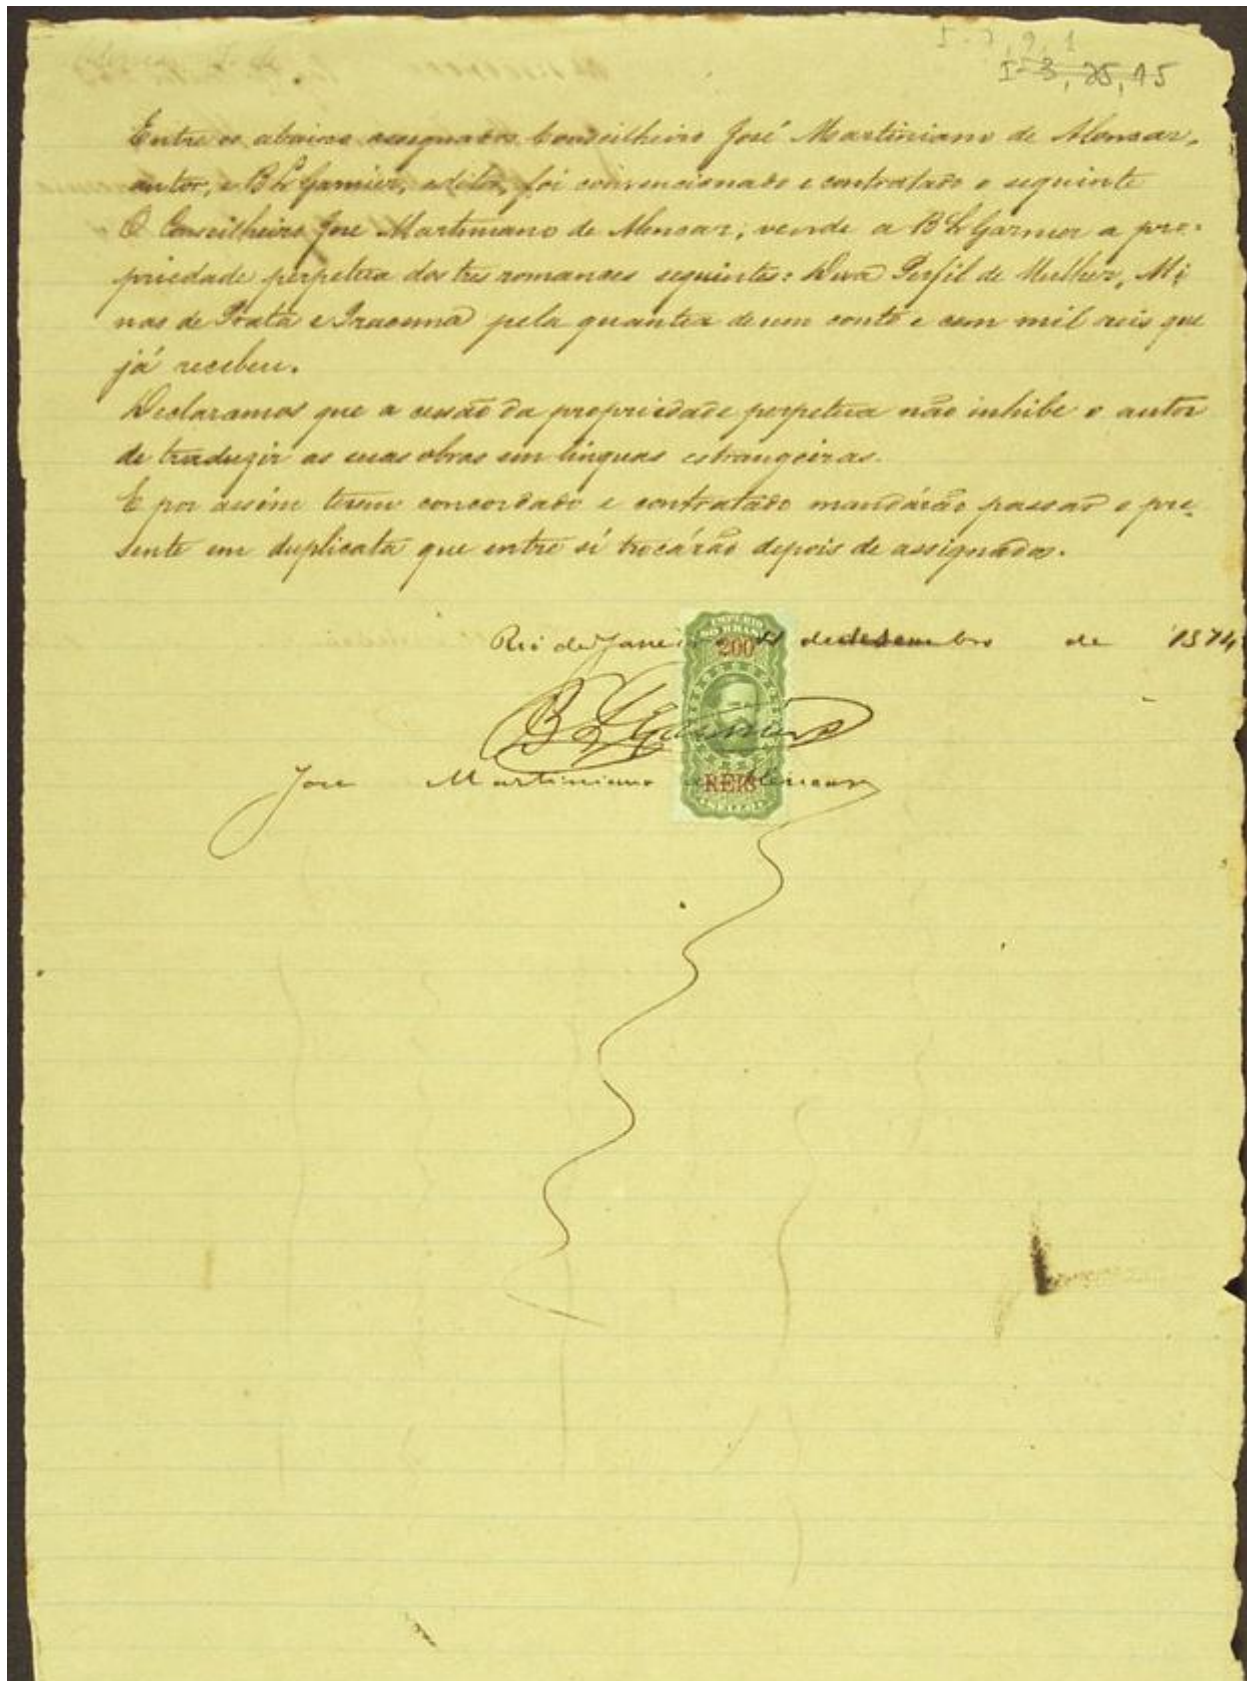 I-7,9,1
I-3,25,15
Entre os abaixo assignados Conseilheiro José Martiniano de Alencar,
autor, e B L Garnier, editor, foi convencionado e contratado o seguinte
O Conseilheiro Jose Martiniano de Alencar, vende a B L Garnier a pro-
priedade perpetua dos tres romances seguintes: Diva Perfil de Mulher, Mi
nas de Prata e Iracema pela quantia de um conto e cem mil reis que
já recebeu.
Declaramos que a cessão da propriedade perpetua não inhibe o autor
de traduzir as suas obras em linguas estrangeiras.
E por assim terem concordado e contratado mandárão passar o pre-
sente em duplicata que entre si trocárão depois de assignados.
IMPERIO
DO BRASIL
200
Rio de Janeiro de desembro de 1874
B L Garnier
José Martiniano de Alencar
REIS